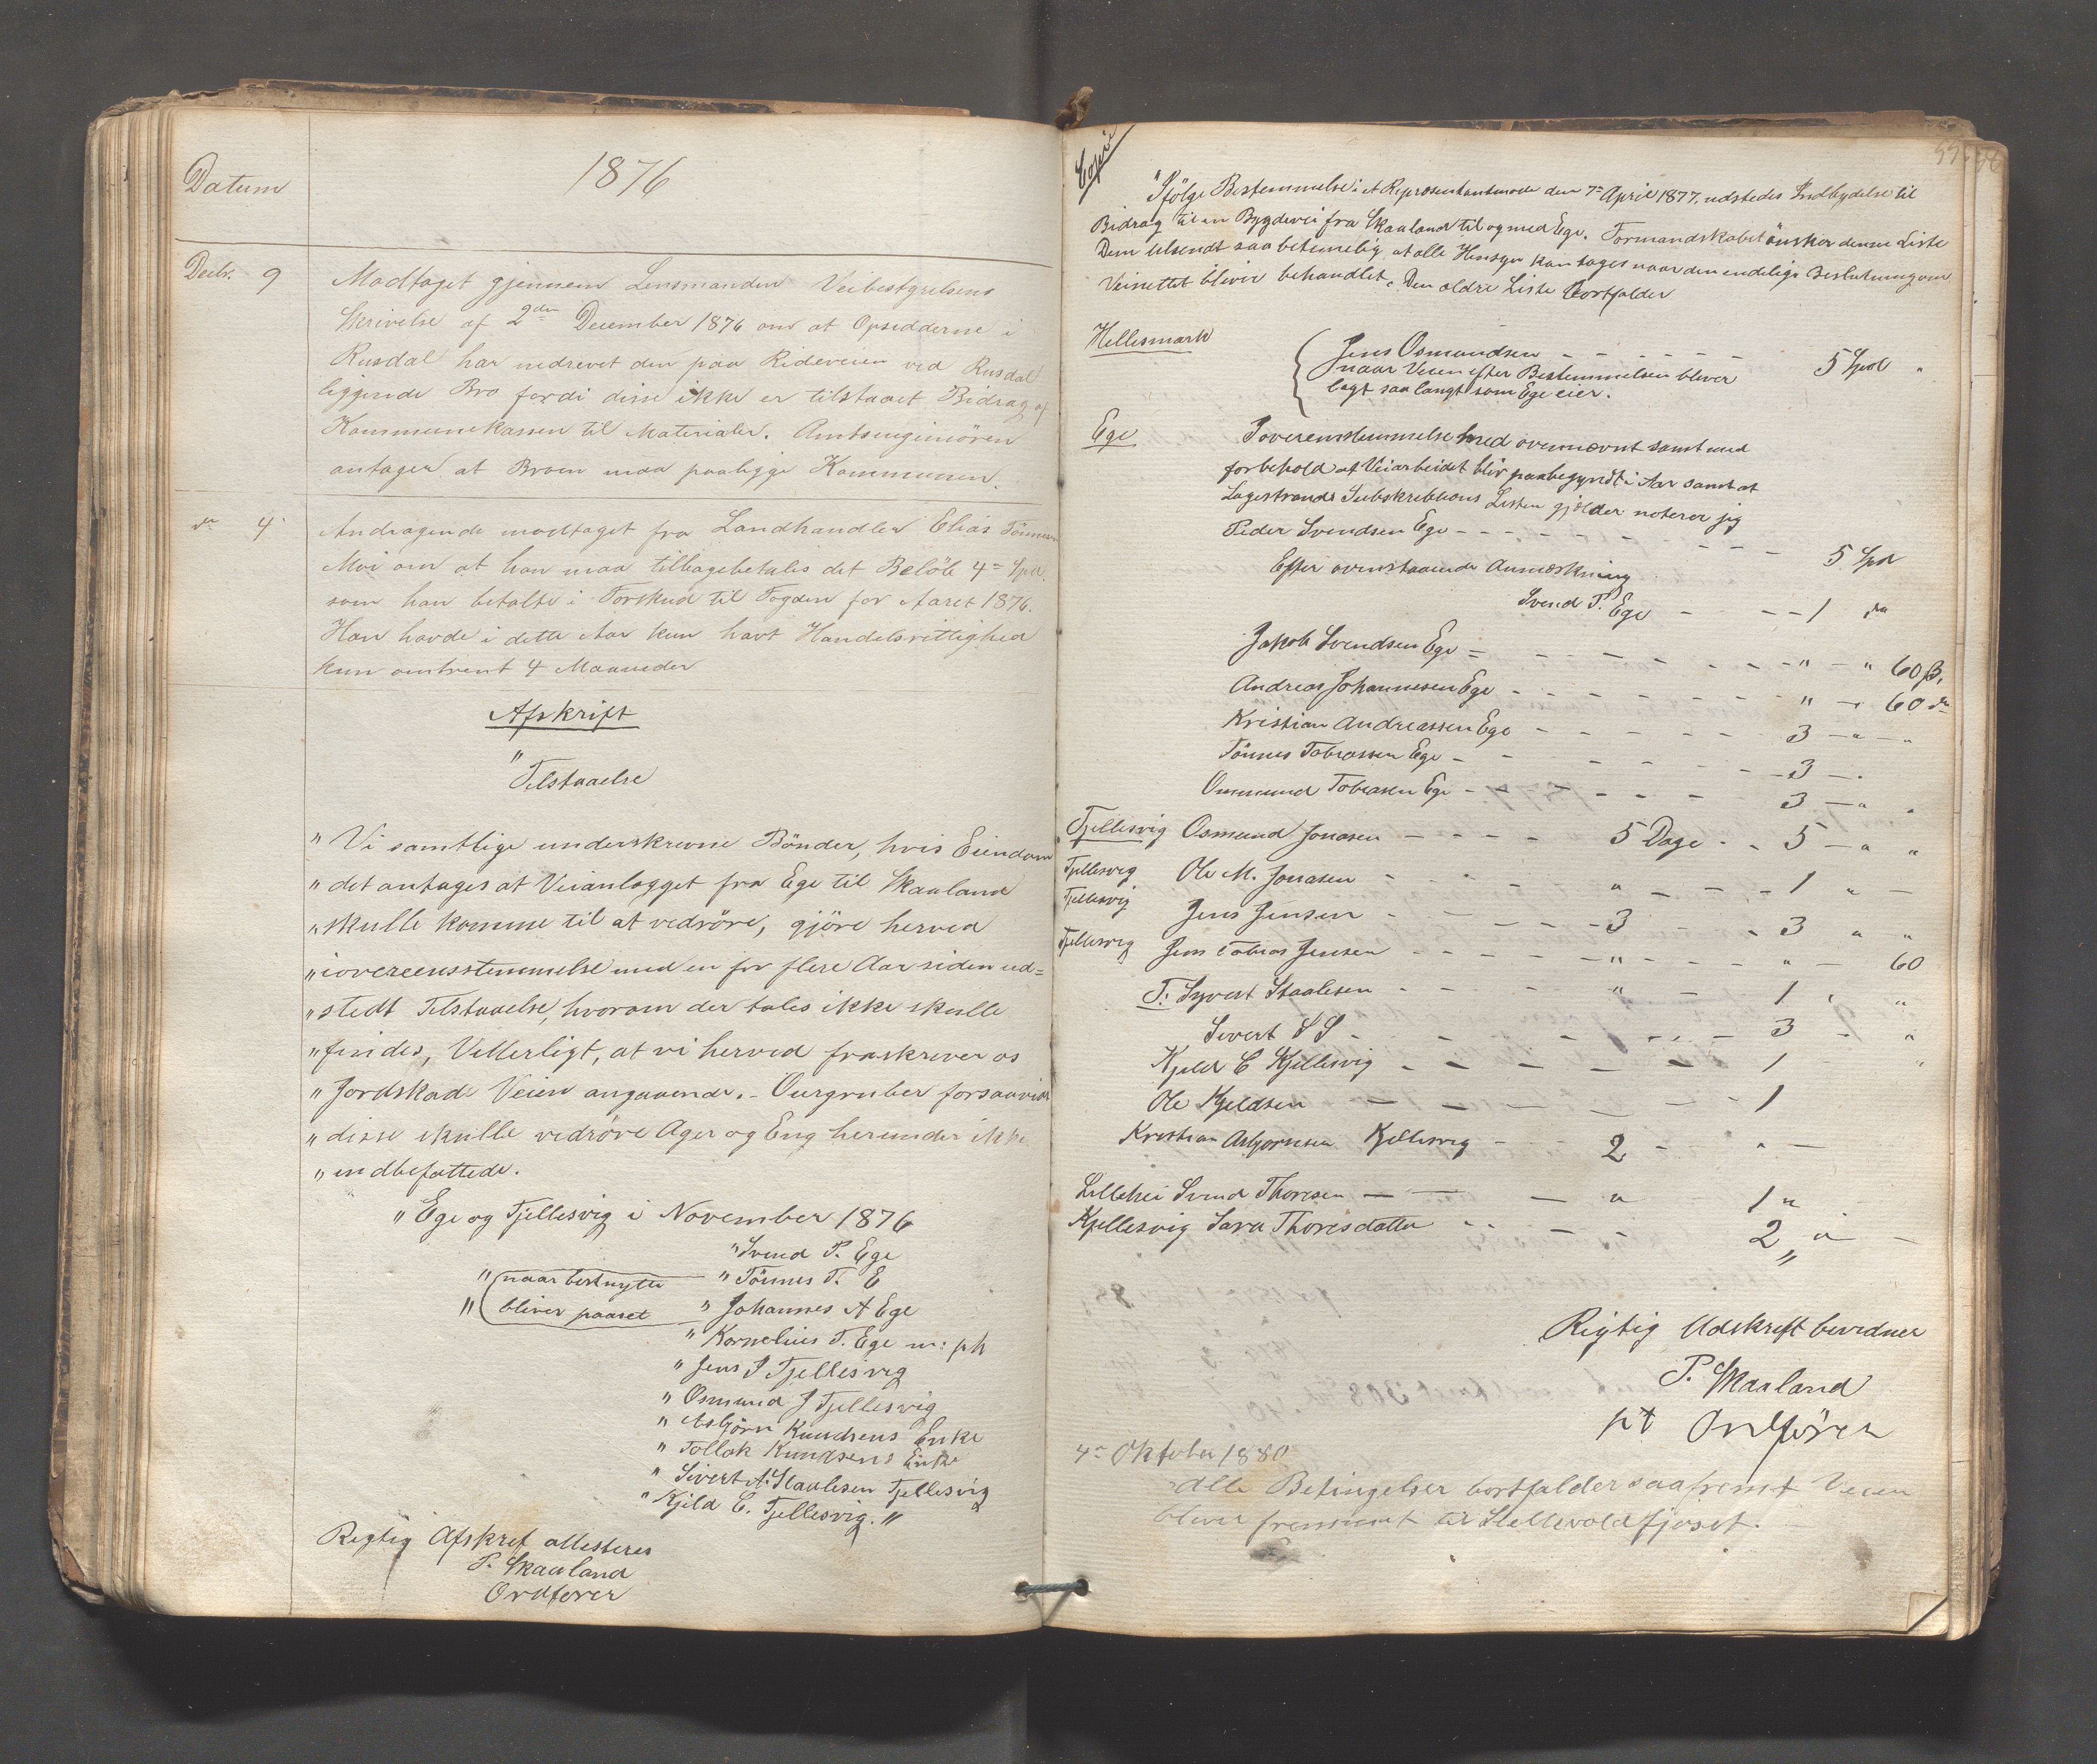 Datum
1876
Decbr. 9
Modtaget gjennem Lensmanden Veibestyrelsens
Skrivelse af 2den December 1876 om at Opsidderne i
Rusdal har nedrevet den paa Rideveien ved Rusdal
liggende Bro fordi disse ikke er tilstaaet Bidrag af
Kommunekassen til Materialer. Amtsingeniören
antager at Broen maa paaligge Kommunen.
do 4
Andragende modtaget fra Landhandler Elias Tönnesen
Moi om at han maa tilbagebetales det Belöb 4 = Spd.
som han betalte i Forskud til Fogden for Aaret 1876.
Han havde i dette Aar kun havt Handelsrettighed
kun omtrent 4 Maaneder
Afskrift
"Tilstaaelse
" Vi samtlige underskrevne Bönder, hvis Eiendom
" det antages at Veianlægget fra Ege til Skaaland
" skulle komme til at vedröre, gjöre herved
" iovereensstemmelse med en for flere Aar siden ud=
" stedt Tilstaaelse, hvorom der tales ikke skulle
" findes, Vitterligt, at vi herved fraskriver os
" Jordskade Veien angaaende. - Ourgruber forsaavidt
" disse skulle vedröre Ager og Eng herunder ikke
" indbefattede.
" Ege og Fjellesvig i November 1876
" Svend P. Ege
" naar besknytte " Tönnes T. E
" bliver paaset " Johannes A Ege
" Kornelius T. Ege m: ph
" Jens J Fjellesvig
" Osmund J Fjellesvig
" Asbjörn Knudsens Enke
" Tollak Knudsens Enke
" Sivert A. Staalesen Fjellesvig
" Kjeld C. Fjellesvig. "
Rigtig Afskrift attesteres
P. Skaaland
Ordförer
Copi
"Ifölge Bestemmelse i et Repræsentantmöde den 7de April 1877, udstedes Indbydelse til
Bidrag til en Bygdevei fra Skaaland til og med Ege. Formandskabet önsker denne Liste
Dem tilsendt saa betimelig at alle Hensyn kan tages naar den endelige Beslutning om
Veinettet bliver behandlet. Den ældre Liste bortfalder
Hellesmark
Jens Osmundsen - - - - - - 5 Spd "
naar Veien efter Bestemmelsen bliver
lagt saa langt som Ege eier.
Ege
I overenstemmelse med ovennævnt samt med
forbehold at Veiarbeidet blir paabegyndt i Aar samt at
Lagestrands Subskribtions Listen gjælder noterer jeg
Peder Svendsen Ege - - - - - - - - - 5 Spd
Efter ovenstaaende Anmærkning
Svend P. Ege - - - 1 do
Jakob Svendsen Ege - - - - - - - " - " 60 ß.
Andreas Johannesen Ege - - - - - - - " - " 60 do
Kristian Andreassen Ege - - - - - - 3 - " - "
Tönnes Tobiassen Ege - - - - - - 3 - "
Ommund Tobiasen Ege - - - - - - 3 - " "
Fjellesvig Osmund Jonasen - - - - 5 Dage - - 5 - " "
Fjellesvig Ole M. Jonasen - - - - " - - - 1 " -
Fjellesvig Jens Jensen - - - - - 3 - - 3 " "
Fjellesvig Jens Tobias Jensen - - - - - " - - - " - 60
F: Syvert Staalesen - - - - " - - 1 " "
Sivert S S - - - - - - - - 3 - "
Kjeld C Kjellesvig - - - - - 1 - "
Ole Kjeldsen - - - - - - 1
Kristian Asbjornsen Kjellesvig - - 2 - " -
Lillehei Svend Thoresen - - - " 1 "
Kjellesvig Sara Thoresdatter - - - - 2 " " -
Rigtig Udskrift bevidner
P. Skaaland
pt Ordförer
4de Oktober 1880
Alle Betingelser bortfalder saafremt Veien
bliver fremmet til